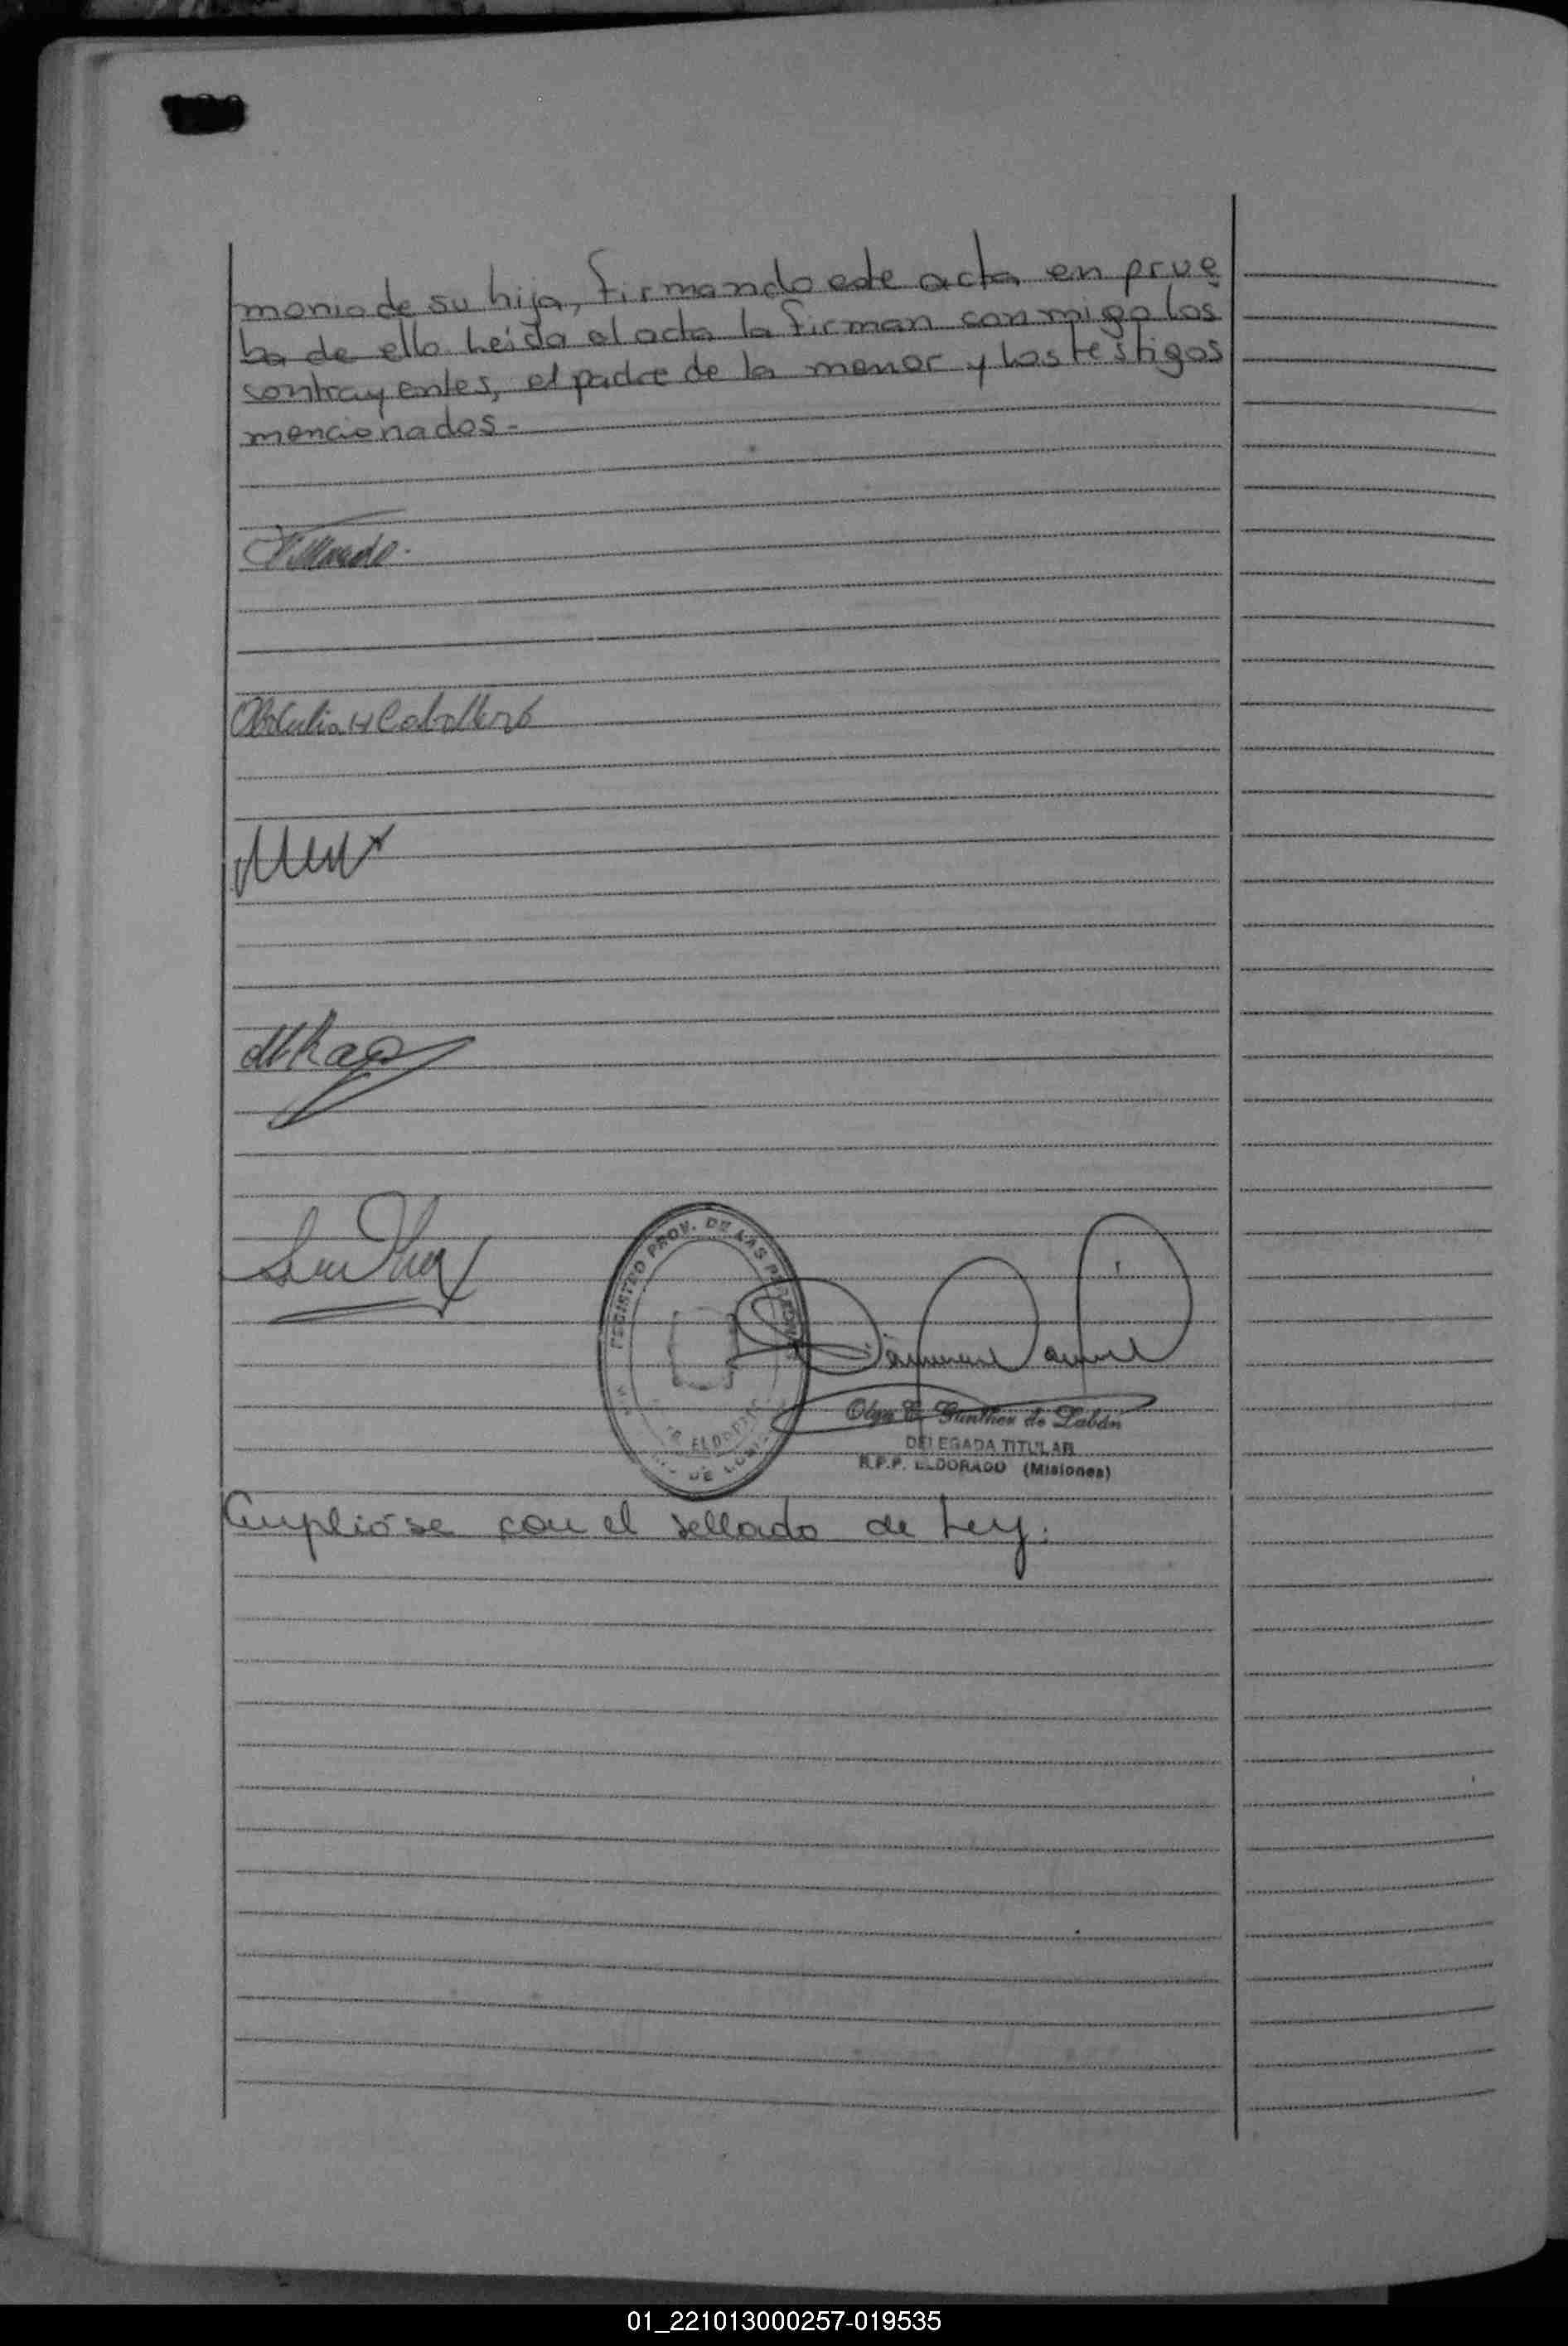 monio de su hija, firmando este acta en prue
ba de ello Leída el acta la firman conmigo los
contrayentes, el padre de la menor y los testigos
mencionados.-
Obdulia H Caballero
REGISTRO PROV. DE LAS PERSONAS
ELDORADO
Olga E. Günther de Labán
DELEGADA TITULAR
R.P.P. ELDORADO (Misiones)
Cumplióse con el sellado de Ley.
01_221013000257-019535